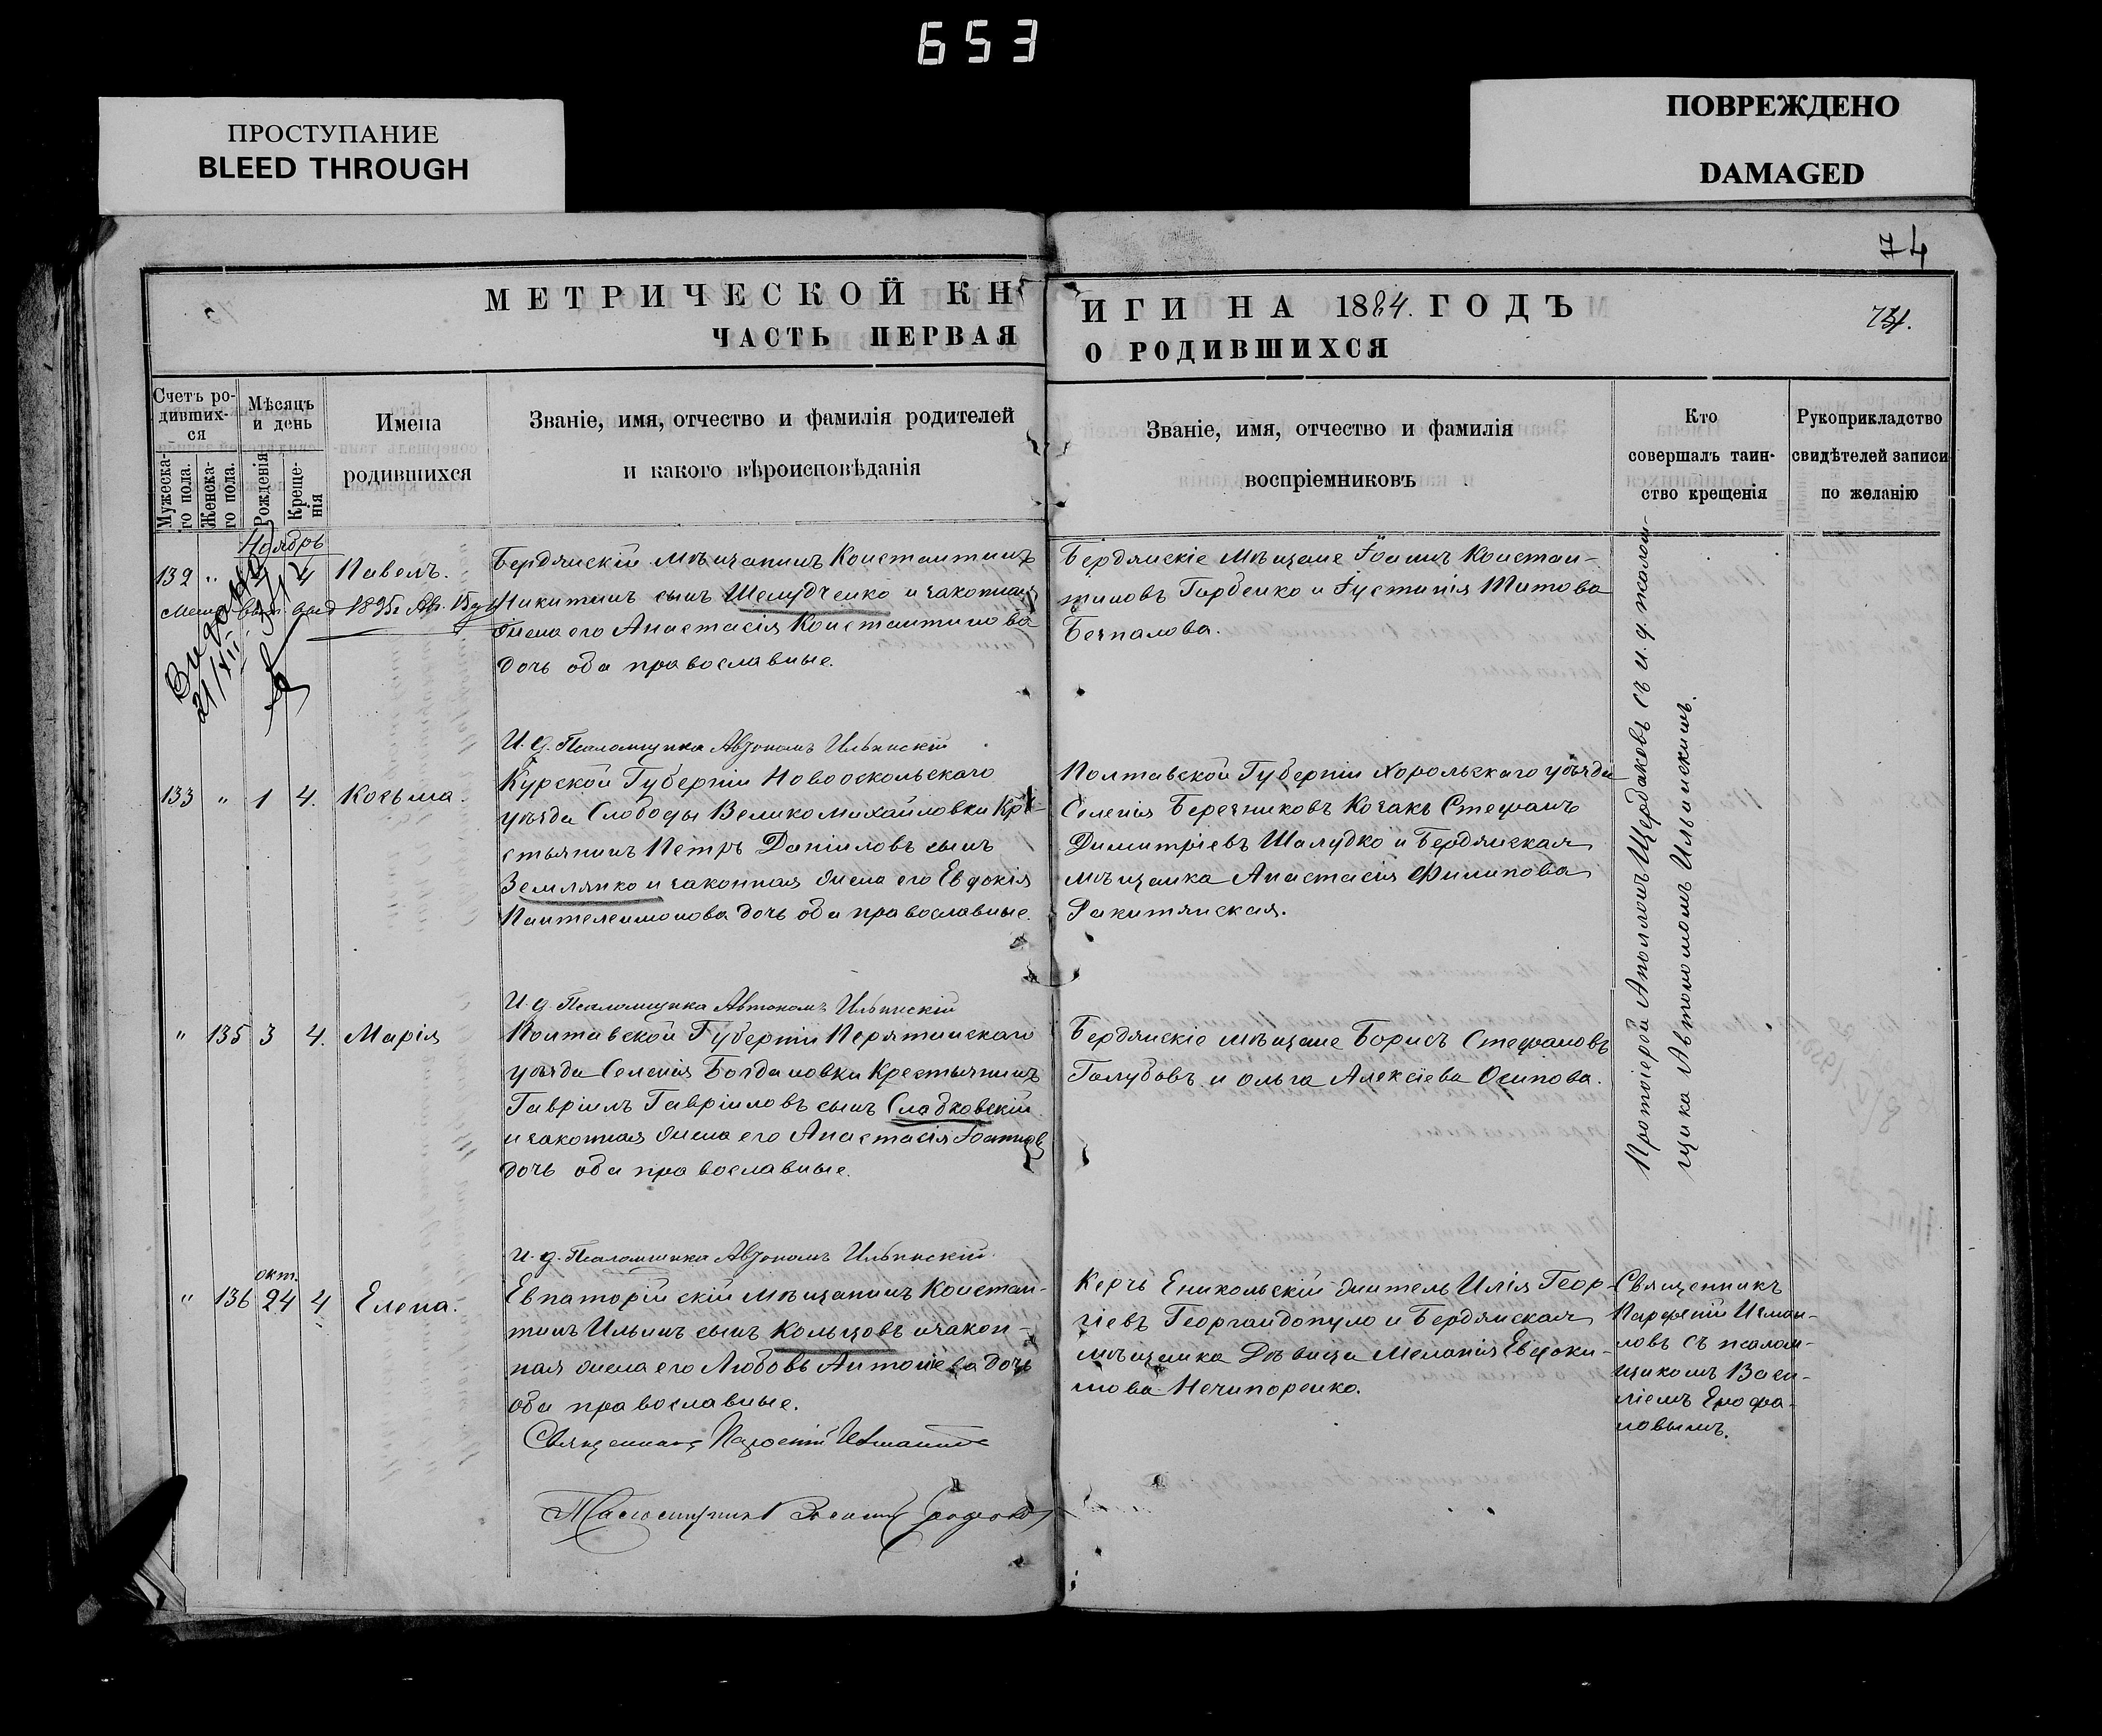 653
ПРОСТУПАНИЕ
BLEED THROUGH
ПОВРЕЖДЕНО
DAMAGED
74
МЕТРИЧЕСКОЙ КН
ИГИ НА 1884. ГОДЪ
ЧАСТЬ ПЕРВАЯ
О РОДИВШИХСЯ
Счетъ ро-
дивших-
ся
Мужеска-
го пола.
Женска-
го пола.
Мѣсяцъ
и день
Рожденія
Креще-
нія
Имена
родившихся
Званіе, имя, отчество и фамилія родителей
и какого вѣроисповѣданія
Званіе, имя, отчество и фамилія
воспріемниковъ
Кто
совершалъ таин-
ство крещенія
Рукоприкладство
свидѣтелей записи
по желанію
Ноябрь
132 " 4 Павелъ.
1895г. Авг. 15
21/XII
Бердянскій мѣщанинъ Константинъ
Никитинъ сынъ Шелудченко и законная
жена его Анастасія Константинова
дочь оба православные.
Бердянскіе мѣщане Іоаннъ Констан-
тиновъ Горбенко и Іустинія Титова
Безпалова.
И. д. Псаломщика Автономъ Ильинскій
133 " 1 4. Козьма.
Курской Губерніи Новооскольскаго
уѣзда Слободы Великомихайловки Кре-
стьянинъ Петръ Даніиловъ сынъ
Землянко и законная жена его Евдокія
Пантелеимонова дочь оба православные.
Полтавской Губерніи Хорольскаго уѣзда
Селенія Березниковъ Козакъ Стефанъ
Димитріевъ Шалудко и Бердянская
мѣщанка Анастасія Филипова
Ракитянская.
И. д. Псаломщика Автономъ Ильинскій
" 135 3 4. Марія
Полтавской Губерніи Перятинскаго
уѣзда Селенія Богдановки Крестьянинъ
Гавріилъ Гавріиловъ сынъ Сладковскій
и законная жена его Анастасія Іоаннова
дочь оба православные.
Бердянскіе мѣщане Борисъ Стефановъ
Голубовъ и Ольга Алексіева Осипова.
Протоіерей Аполлонъ Щербаковъ съ и. д. псалом-
щика Автономомъ Ильинскимъ.
И. д. Псаломщика Автономъ Ильинскій
окт.
" 136 24 4 Елена.
Евпаторійскій мѣщанинъ Констан-
тинъ Ильинъ сынъ Кольцовъ и закон-
ная жена его Любовь Антоніева дочь
оба православные.
Керчь Еникольскій житель Илія Геор-
гіевъ Георгандопуло и Бердянская
мѣщанка Дѣвица Меланія Евдоки-
мова Нечипоренко.
Священникъ
Парфеній Исмаи-
ловъ съ псалом-
щикомъ Васи-
ліемъ Ерофа-
ловымъ.
Священникъ Парфеній
Псаломщикъ Василій